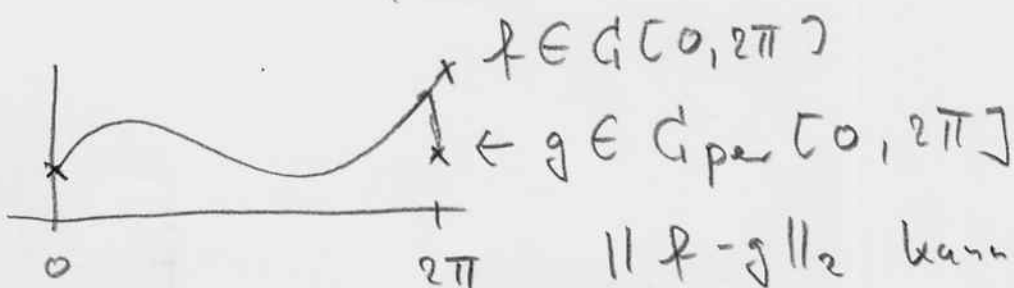 f ∈ C[0, 2π]
← g ∈ C per [0, 2π]
0 2π ‖f - g‖₂ kann